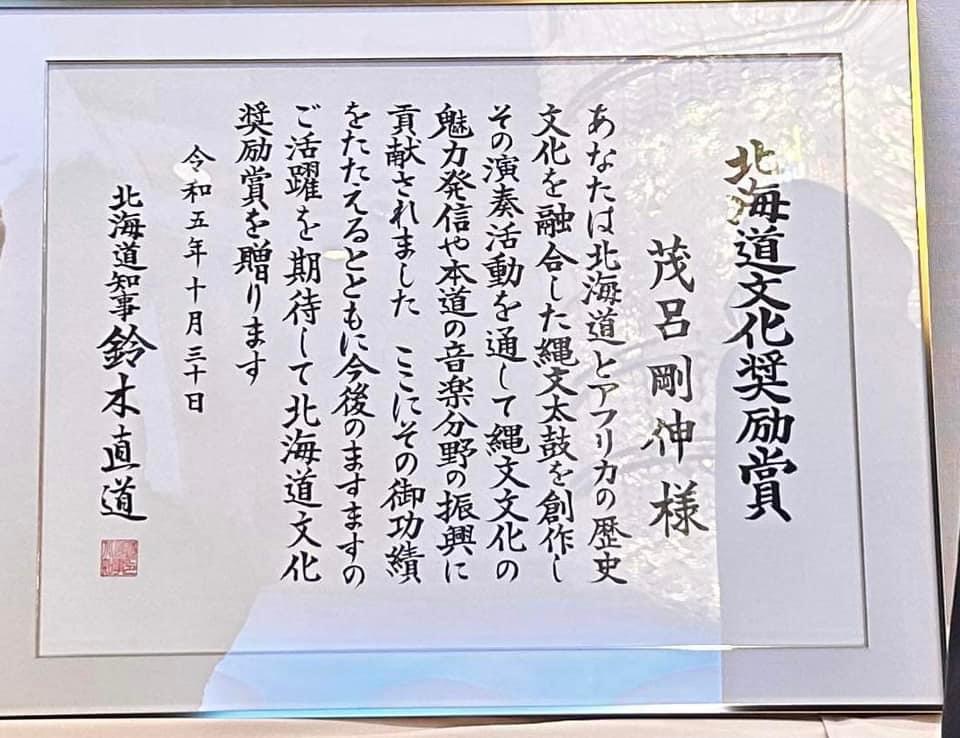 北海道文化奨励賞
茂呂剛伸様
あなたは北海道とアフリカの歴史
文化を融合した縄文太鼓を創作し
その演奏活動を通して縄文文化の
魅力発信や本道の音楽分野の振興に
貢献されました ここにその御功績
をたたえるとともに今後のますますの
ご活躍を期待して北海道文化
奨励賞を贈ります
令和五年十月三十日
北海道知事 鈴木直道